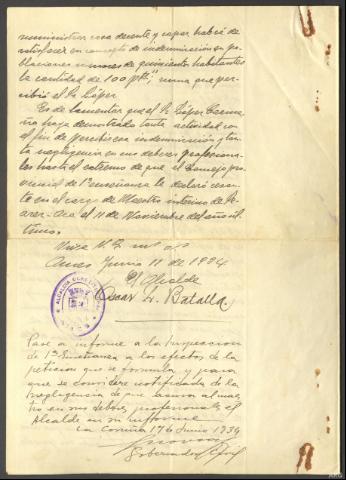 suministrar casa decente y capaz habrá de
satisfacer en concepto de indemnización en po-
blaciones menores de quinientos habitantes
la cantidad de 100 pts", suma que per-
cibió el Sr López
Es de lamentar que el Sr López
no haya demostrado tanta actividad con
el fin de percibir esa indemnización y tan-
ta negligencia en sus deberes profesiona-
les hasta el extremo de que el Consejo pro-
vincial de 1ª enseñanza le declaró cesan-
te en el cargo de Maestro interino de
el 11 de Noviembre del año úl-
timo.
Viva V. S. ms. as.
Ames Junio 11 de 1934
El Alcalde
Oscar L. Batalla
ALCALDIA CONSTITUCIONAL
AMES
Pase a informe a la Inspeccion
de 1ª Enseñanza a los efectos de la
peticion que se formula y para
que se considere notificada de la
negligencia de que acusa al maes-
tro en sus deberes profesionales el
Alcalde en su informe
La Coruña 17 de Junio 1934
Gobernador Civil